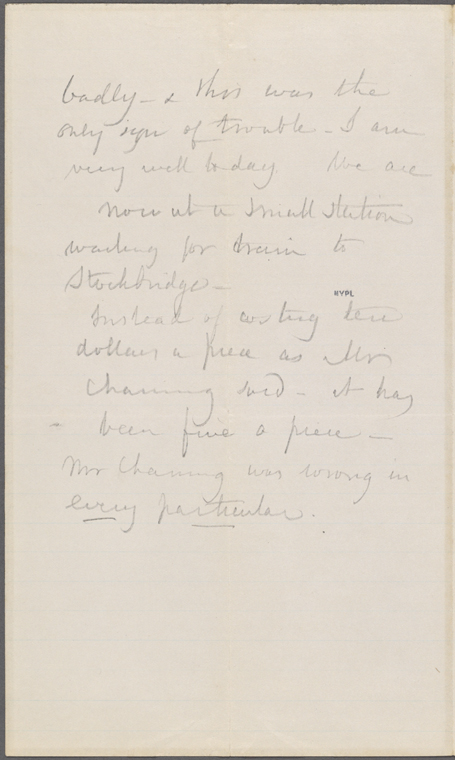 badly - & this was the
only sign of trouble - I am
very well today We are
now at a small station
waiting for train to
Stockbridge -
NYPL
Instead of costing ten
dollars a piece as Mr
Channing said - it has
been five a piece -
Mr Channing was wrong in
every particular.